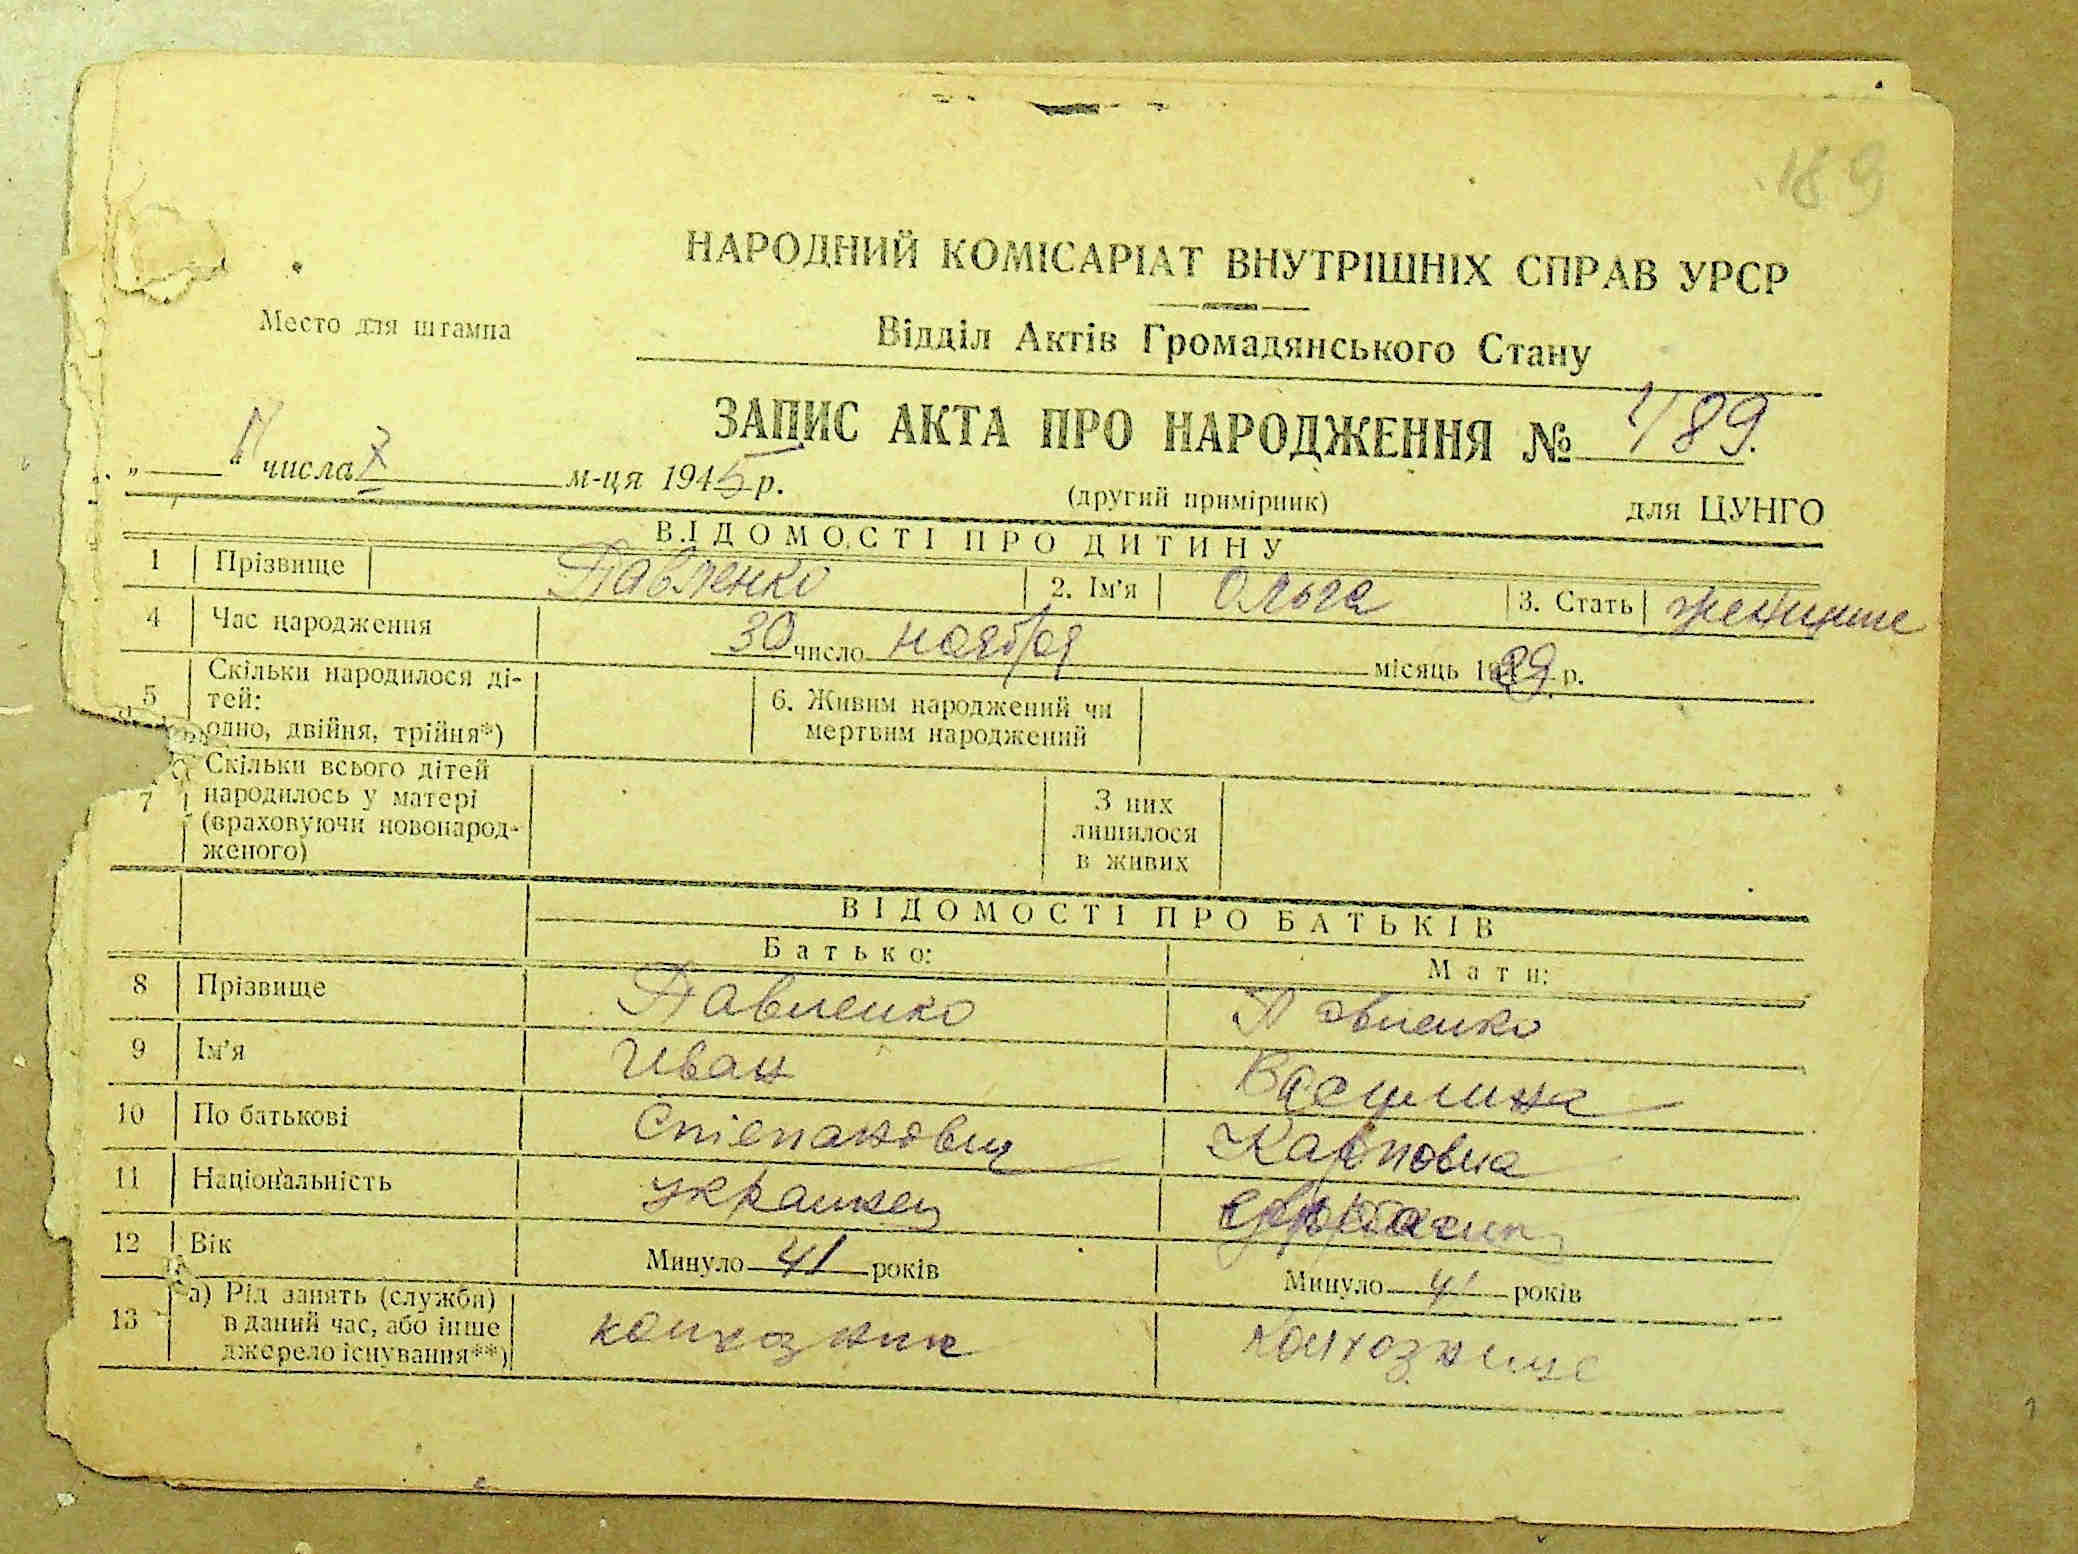 189
НАРОДНИЙ КОМІСАРІАТ ВНУТРІШНІХ СПРАВ УРСР
Место для штампа
Відділ Актів Громадянського Стану
ЗАПИС АКТА ПРО НАРОДЖЕННЯ № 189.
„ “ числа X м-ця 1945 р.
(другий примірник) для ЦУНГО
ВІДОМОСТІ ПРО ДИТИНУ
1 Прізвище Павленко 2. Ім'я Ольга 3. Стать
4 Час народження 30 число ноября місяць 1939 р.
5 Скільки народилося ді-
тей:
одно, двійня, трійня*)
6. Живим народжений чи
мертвим народжений
7 Скільки всього дітей
народилось у матері
(враховуючи новонарод-
женого)
З них
лишилося
в живих
ВІДОМОСТІ ПРО БАТЬКІВ
Батько: Мати:
8 Прізвище Павленко Павленко
9 Ім'я Иван Василина
10 По батькові Степанович Карповна
11 Національність украинец
12 Вік Минуло 41 років Минуло 41 років
13 а) Рід занять (служби)
в даний час, або інше
джерело існування**)
колхозник колхознице